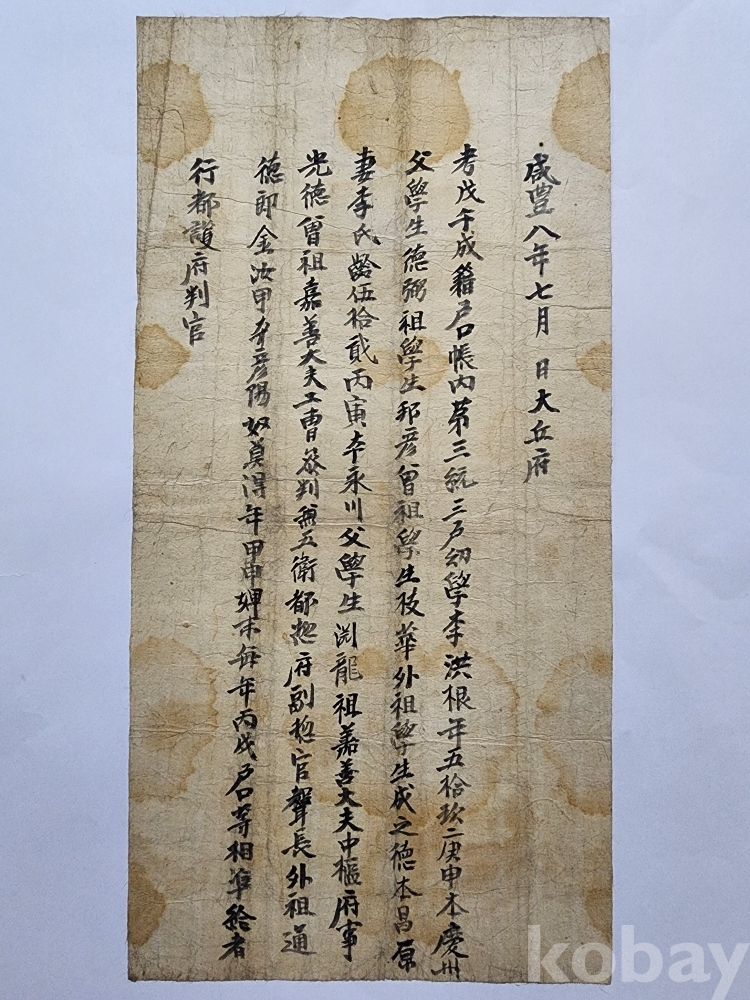 咸豊八年七月 日大丘府
考戊午成籍戶口帳內第三統三戶幼學李洪根年五拾玖庚申本慶州
父學生德弼祖學生邦彦曾祖學生枝華外祖學生成之德本昌原
妻李氏齡伍拾貳丙寅本永川父學生淵龍祖嘉善大夫中樞府事
光德曾祖嘉善大夫工曹叅判兼五衛都摠府副摠官聲長外祖通
德郎金汝甲本彦陽奴莫得年甲申婢末每年丙戌戶口等相準給者
行都護府判官
kobay